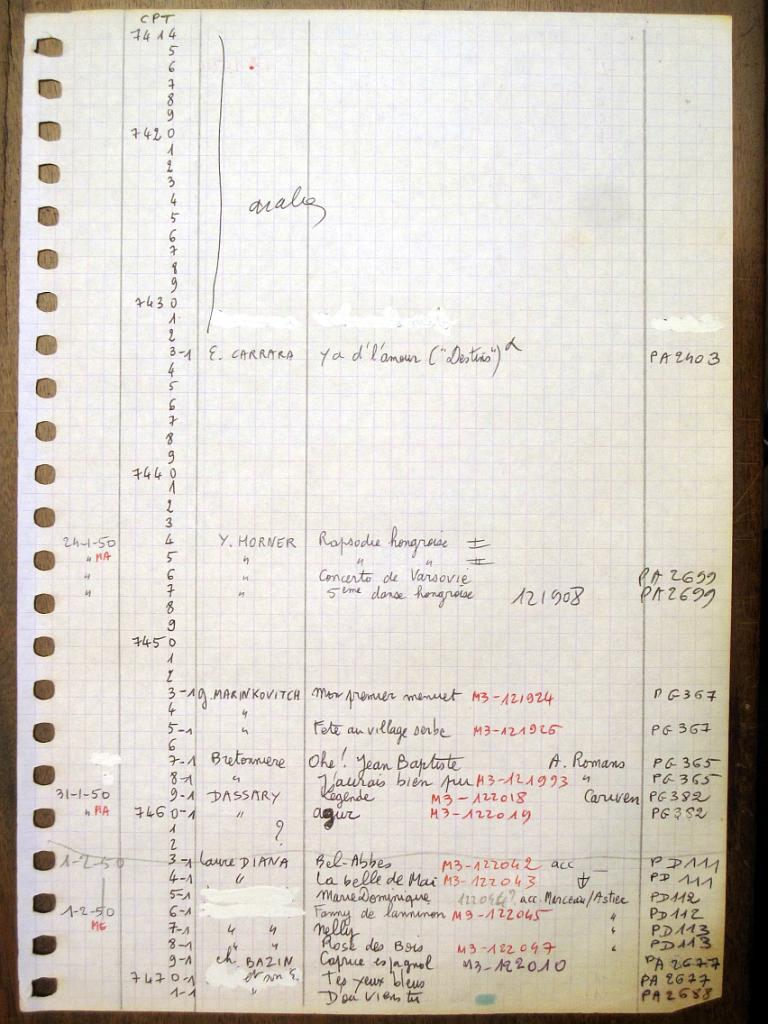 CPT
7414
5
6
7
8
9
7420
1
2
3
4
5
6
7
8
9
7430
1
2
3-1 E. CARRARA Y a d'l'amour ("Destins") PA 2403
4
5
6
7
8
9
7440
1
2
3
24-1-50 4 Y. HORNER Rapsodie hongroise
" MA 5 " " "
" 6 " Concerto de Varsovie PA 2699
" 7 " 5ème danse hongroise 121908 PA 2699
8
9
7450
1
2
3-1 g. MARINKOVITCH Mon premier menuet M3-121924 PG 367
4 "
5-1 " Fete au village serbe M3-121925 PG 367
6
7-1 Bretonniere Ohe! Jean Baptiste A. Romans PG 365
8-1 " J'aurais bien pu M3-121993 " PG 365
31-1-50 9-1 DASSARY Légende M3-122018 Cariven PG 382
" MA 7460-1 " agur M3-122019 PG 382
1 ?
2
1-2-50 3-1 Laure DIANA Bel-Abbes M3-122042 acc PD 111
4-1 " La belle de Mai M3-122043 PD 111
5-1 Marie Dominique 122044? acc. Marceau/Astier PD 112
1-2-50 6-1 Fanny de lanninon M3-122045 " PD 112
M6 7-1 " " Nelly " PD 113
8-1 " " Rose des Bois M3-122047 " PD 113
9-1 ch. BAZIN Caprice espagnol M3-122010 PA 2677
7470-1 et son E. Tes yeux bleus PA 2677
1-1 " D'ou viens tu PA 2688